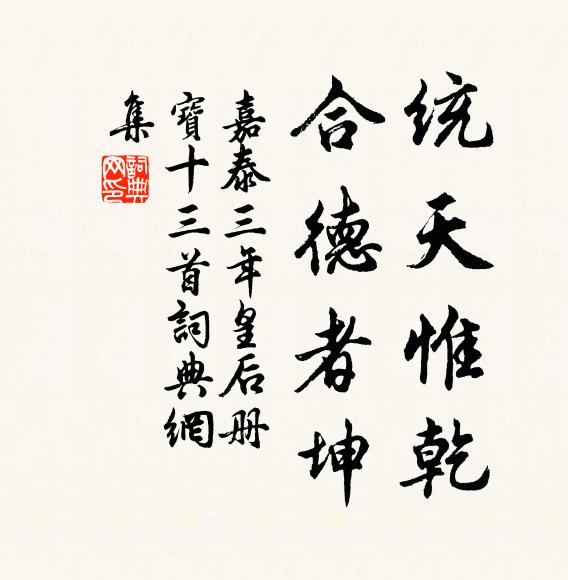 統天惟乾
合德者坤
嘉泰三年皇后册
寶十三首詞典網
集
詞典
网印